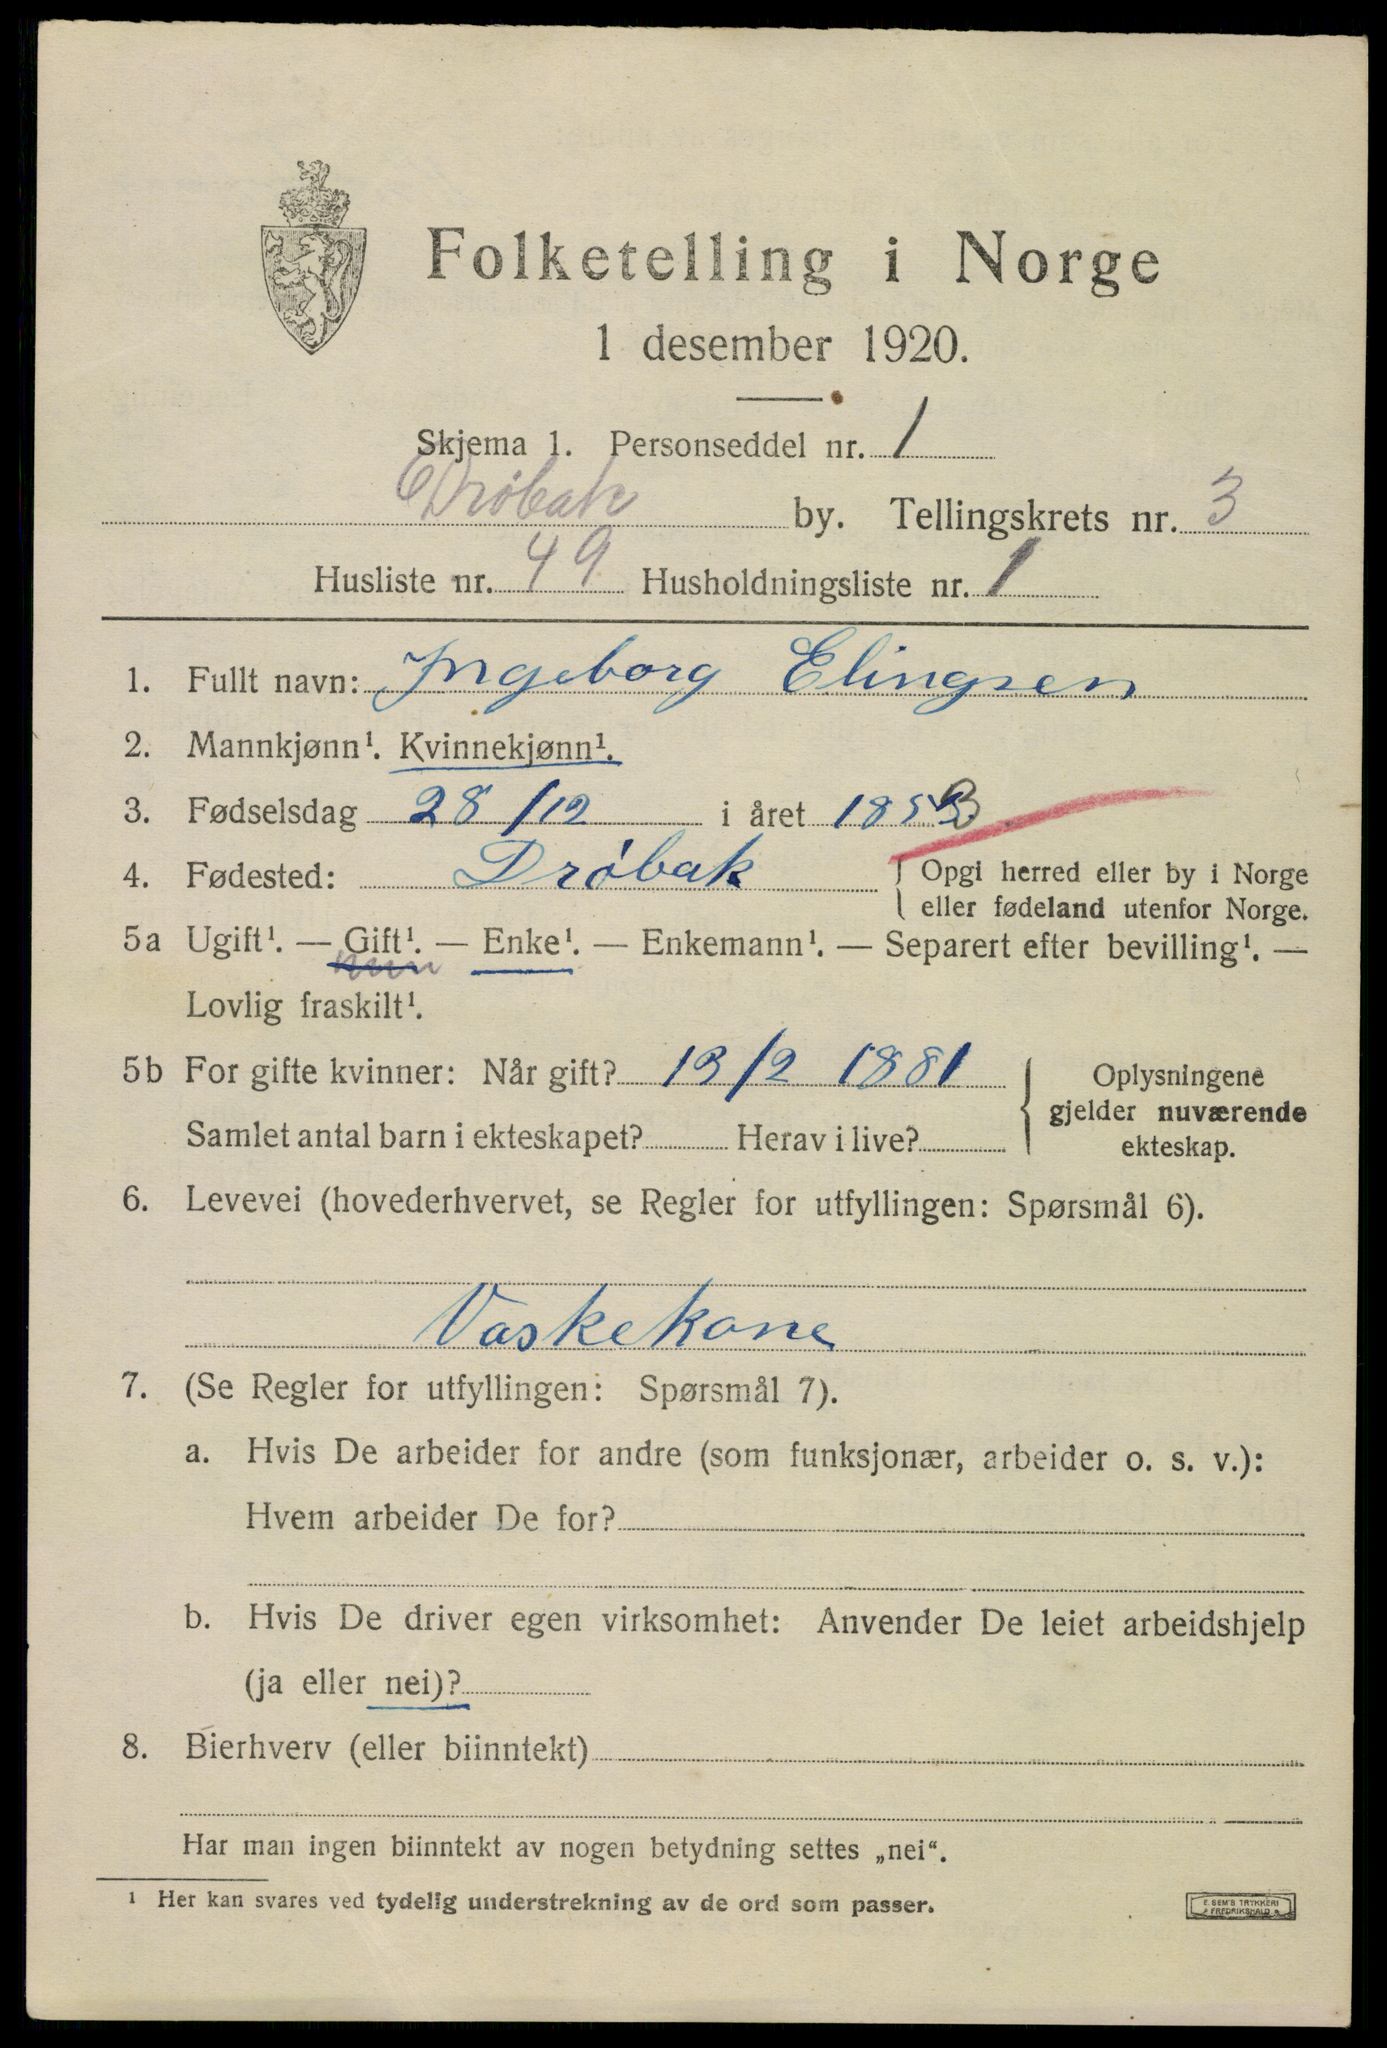 Folketelling i Norge
1 desember 1920.
Skjema 1. Personseddel nr. 1
Drøbak by. Tellingskrets nr. 3
Husliste nr. 49 Husholdningsliste nr. 1
1. Fullt navn: Ingeborg Elingsen
2. Mannkjønn¹. Kvinnekjønn¹.
3. Fødselsdag 28/12 i året 1853
4. Fødested: Drøbak { Opgi herred eller by i Norge
eller fødeland utenfor Norge.
5a Ugift¹. — Gift¹. — Enke¹. — Enkemann¹. — Separert efter bevilling¹. —
Lovlig fraskilt¹.
5b For gifte kvinner: Når gift? 13/2 1881
Samlet antal barn i ekteskapet? Herav i live?
Oplysningene
gjelder nuværende
ekteskap.
6. Levevei (hovederhvervet, se Regler for utfyllingen: Spørsmål 6).
Vaskekone
7. (Se Regler for utfyllingen: Spørsmål 7).
a. Hvis De arbeider for andre (som funksjonær, arbeider o. s. v.):
Hvem arbeider De for?
b. Hvis De driver egen virksomhet: Anvender De leiet arbeidshjelp
(ja eller nei)?
8. Bierhverv (eller biinntekt)
Har man ingen biinntekt av nogen betydning settes „nei“.
¹ Her kan svares ved tydelig understrekning av de ord som passer.
E. SEM'S TRYKKERI
FREDRIKSHALD